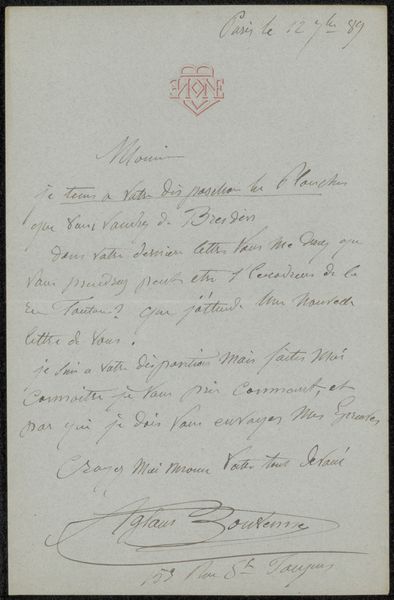 Paris le 12 7bre 89
Monsieur
je tiens a votre disposition les Planches
que vous voulez de Bresdin
dans votre dernière lettre vous me dites que
vous prendrez peut etre 1 de la
que j'attende une nouvelle
lettre de vous.
je suis a votre disposition mais faites moi
connaitre je vous prie comment, et
par qui je dois vous envoyer mes
Croyez moi votre tout dévoué
Aglaus Bouvenne
Rue St Jacques